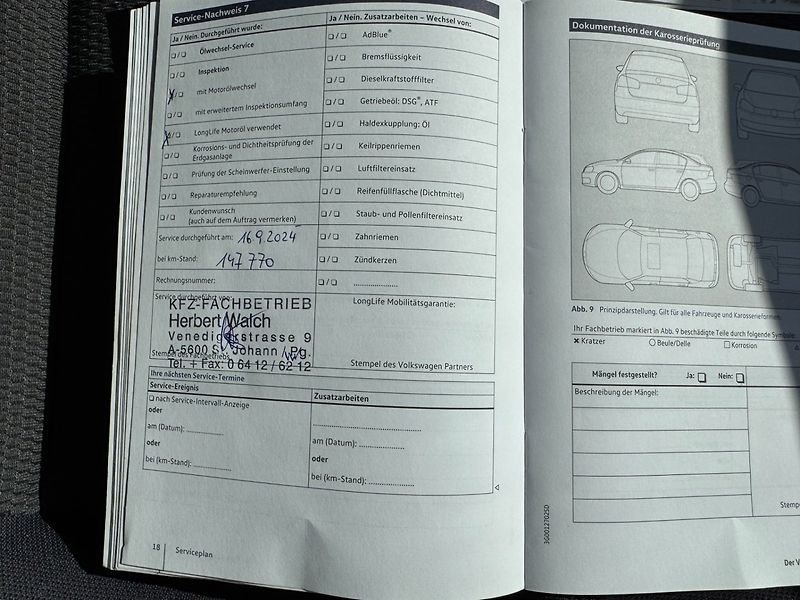 Service-Nachweis 7
Ja / Nein. Durchgeführt wurde:
Ölwechsel-Service
Inspektion
mit Motorölwechsel
mit erweitertem Inspektionsumfang
LongLife Motoröl verwendet
Korrosions- und Dichtheitsprüfung der
Erdgasanlage
Prüfung der Scheinwerfer-Einstellung
Reparaturempfehlung
Kundenwunsch
(auch auf dem Auftrag vermerken)
Service durchgeführt am: 16.9.2024
bei km-Stand: 147 770
Rechnungsnummer:
Service durchgeführt von:
KFZ-FACHBETRIEB
Herbert Walch
Venedigerstrasse 9
A-5600 St. Johann / Pg.
Stempel des Fachbetriebs
Tel. + Fax: 0 64 12 / 62 12
Ja / Nein. Zusatzarbeiten – Wechsel von:
AdBlue®
Bremsflüssigkeit
Dieselkraftstofffilter
Getriebeöl: DSG®, ATF
Haldexkupplung: Öl
Keilrippenriemen
Luftfiltereinsatz
Reifenfüllflasche (Dichtmittel)
Staub- und Pollenfiltereinsatz
Zahnriemen
Zündkerzen
LongLife Mobilitätsgarantie:
Stempel des Volkswagen Partners
Ihre nächsten Service-Termine
Service-Ereignis
nach Service-Intervall-Anzeige
oder
am (Datum):
oder
bei (km-Stand):
Zusatzarbeiten
am (Datum):
oder
bei (km-Stand):
18 Serviceplan
Dokumentation der Karosserieprüfung
Abb. 9 Prinzipdarstellung. Gilt für alle Fahrzeuge und Karosserieformen
Ihr Fachbetrieb markiert in Abb. 9 beschädigte Teile durch folgende Symbole
Kratzer
Beule/Delle
Korrosion
Mängel festgestellt? Ja: Nein:
Beschreibung der Mängel:
3G0012702SD